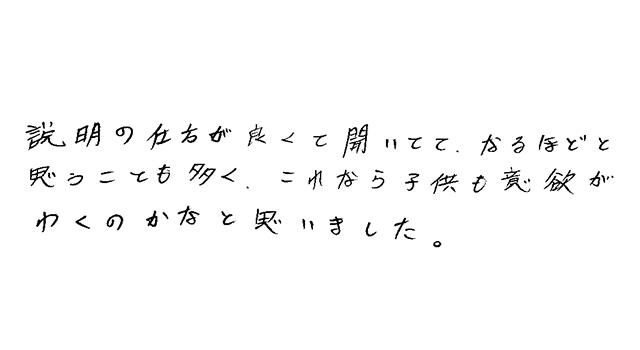 説明の仕方が良くて開いてて、なるほどと
思うことも多く、これなら子供も意欲が
わくのかなと思いました。